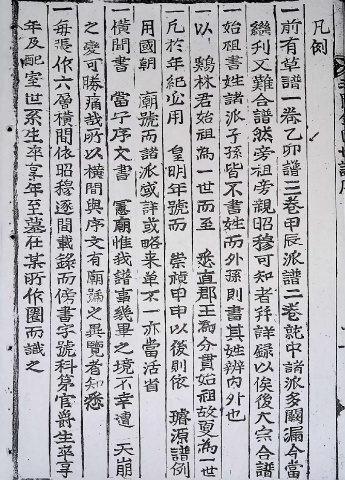 凡例
一前有草譜一卷乙卯譜三卷甲辰派譜二卷就中諸派多闕漏今當
繼刊又難合譜然旁祖旁親昭穆可知者幷詳錄以俟後大宗合譜
一始祖書姓諸派子孫皆不書姓而外孫則書其姓辨內外也
一以 鷄林君始祖爲一世而至 悉直郡王爲分貫始祖故更爲一世
一凡於年紀必用 皇明年號而 崇禎甲申以後則依 璿源譜例
用國朝 廟號而諸派或詳或略來單不一亦當活看
一橫間書 當宁序文書 憲廟惟我譜事幾畢之境不幸遭 天崩
之變可勝痛哉所以橫間與序文有廟號之異覽者知悉
一每張作六層橫間依昭穆逐間載錄而傍書字號科第官爵生卒享
年及配室世系生卒享年至墓在某所作圈而識之